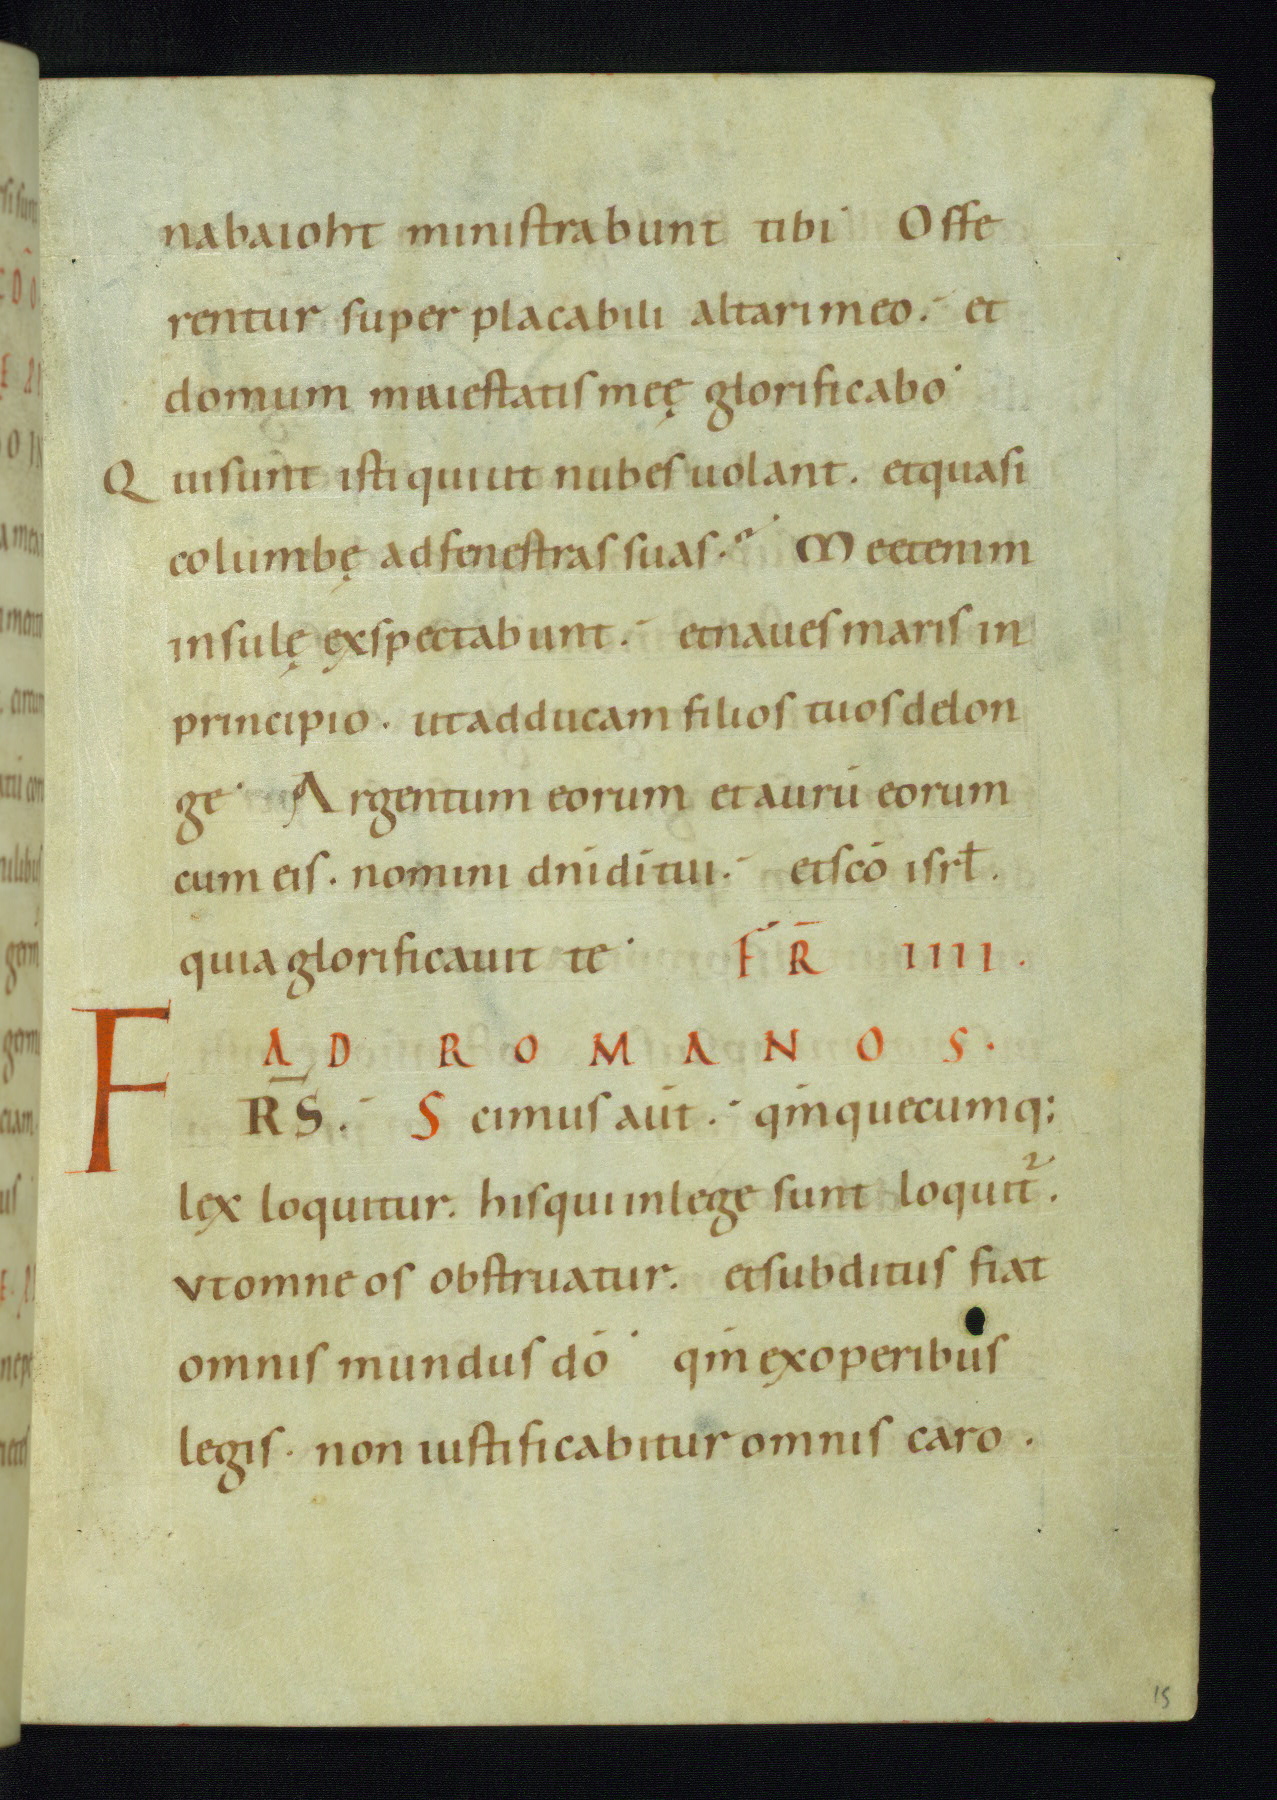 nabaioht ministrabunt tibi· Offe
rentur super placabili altari meo.· et
domum maiestatis meę glorificabo·
Qui sunt isti qui ut nubes uolant. et quasi
columbę ad fenestras suas.· Me etenim
insulę exspectabunt.· et naues maris in
principio. ut adducam filios tuos delon
ge· Argentum eorum et aurū eorum
cum eis. nomini dn̄i dī tui.· et sc̄o isrł.
quia glorificauit te· F R̄ IIII.
AD ROMANOS.
FR̄S.· Scimus aūt.· qm̄ quecumq:
lex loquitur. his qui in lege sunt loquit᷑.
vt omne os obstruatur. et subditus fiat
omnis mundus dō· qm̄ ex operibus
legis. non iustificabitur omnis caro.
15